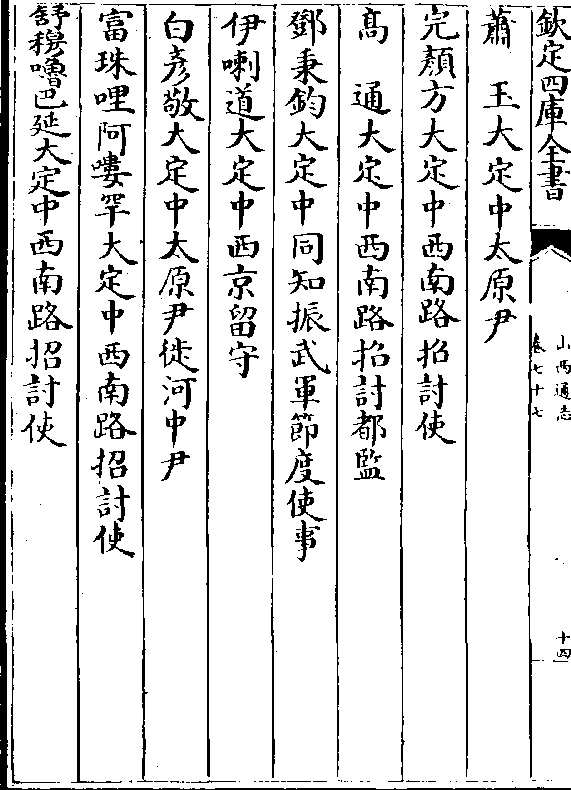 欽定四庫全書
山西通志
卷七十七
十四
蕭　玉大定中太原尹
完顏方大定中西南路招討使
高　通大定中西南路招討都監
鄧秉鈞大定中同知振武軍節度使事
伊喇道大定中西京留守
白彥敬大定中太原尹徙河中尹
富珠哩阿嘍罕大定中西南路招討使
舒穆嚕巴延大定中西南路招討使